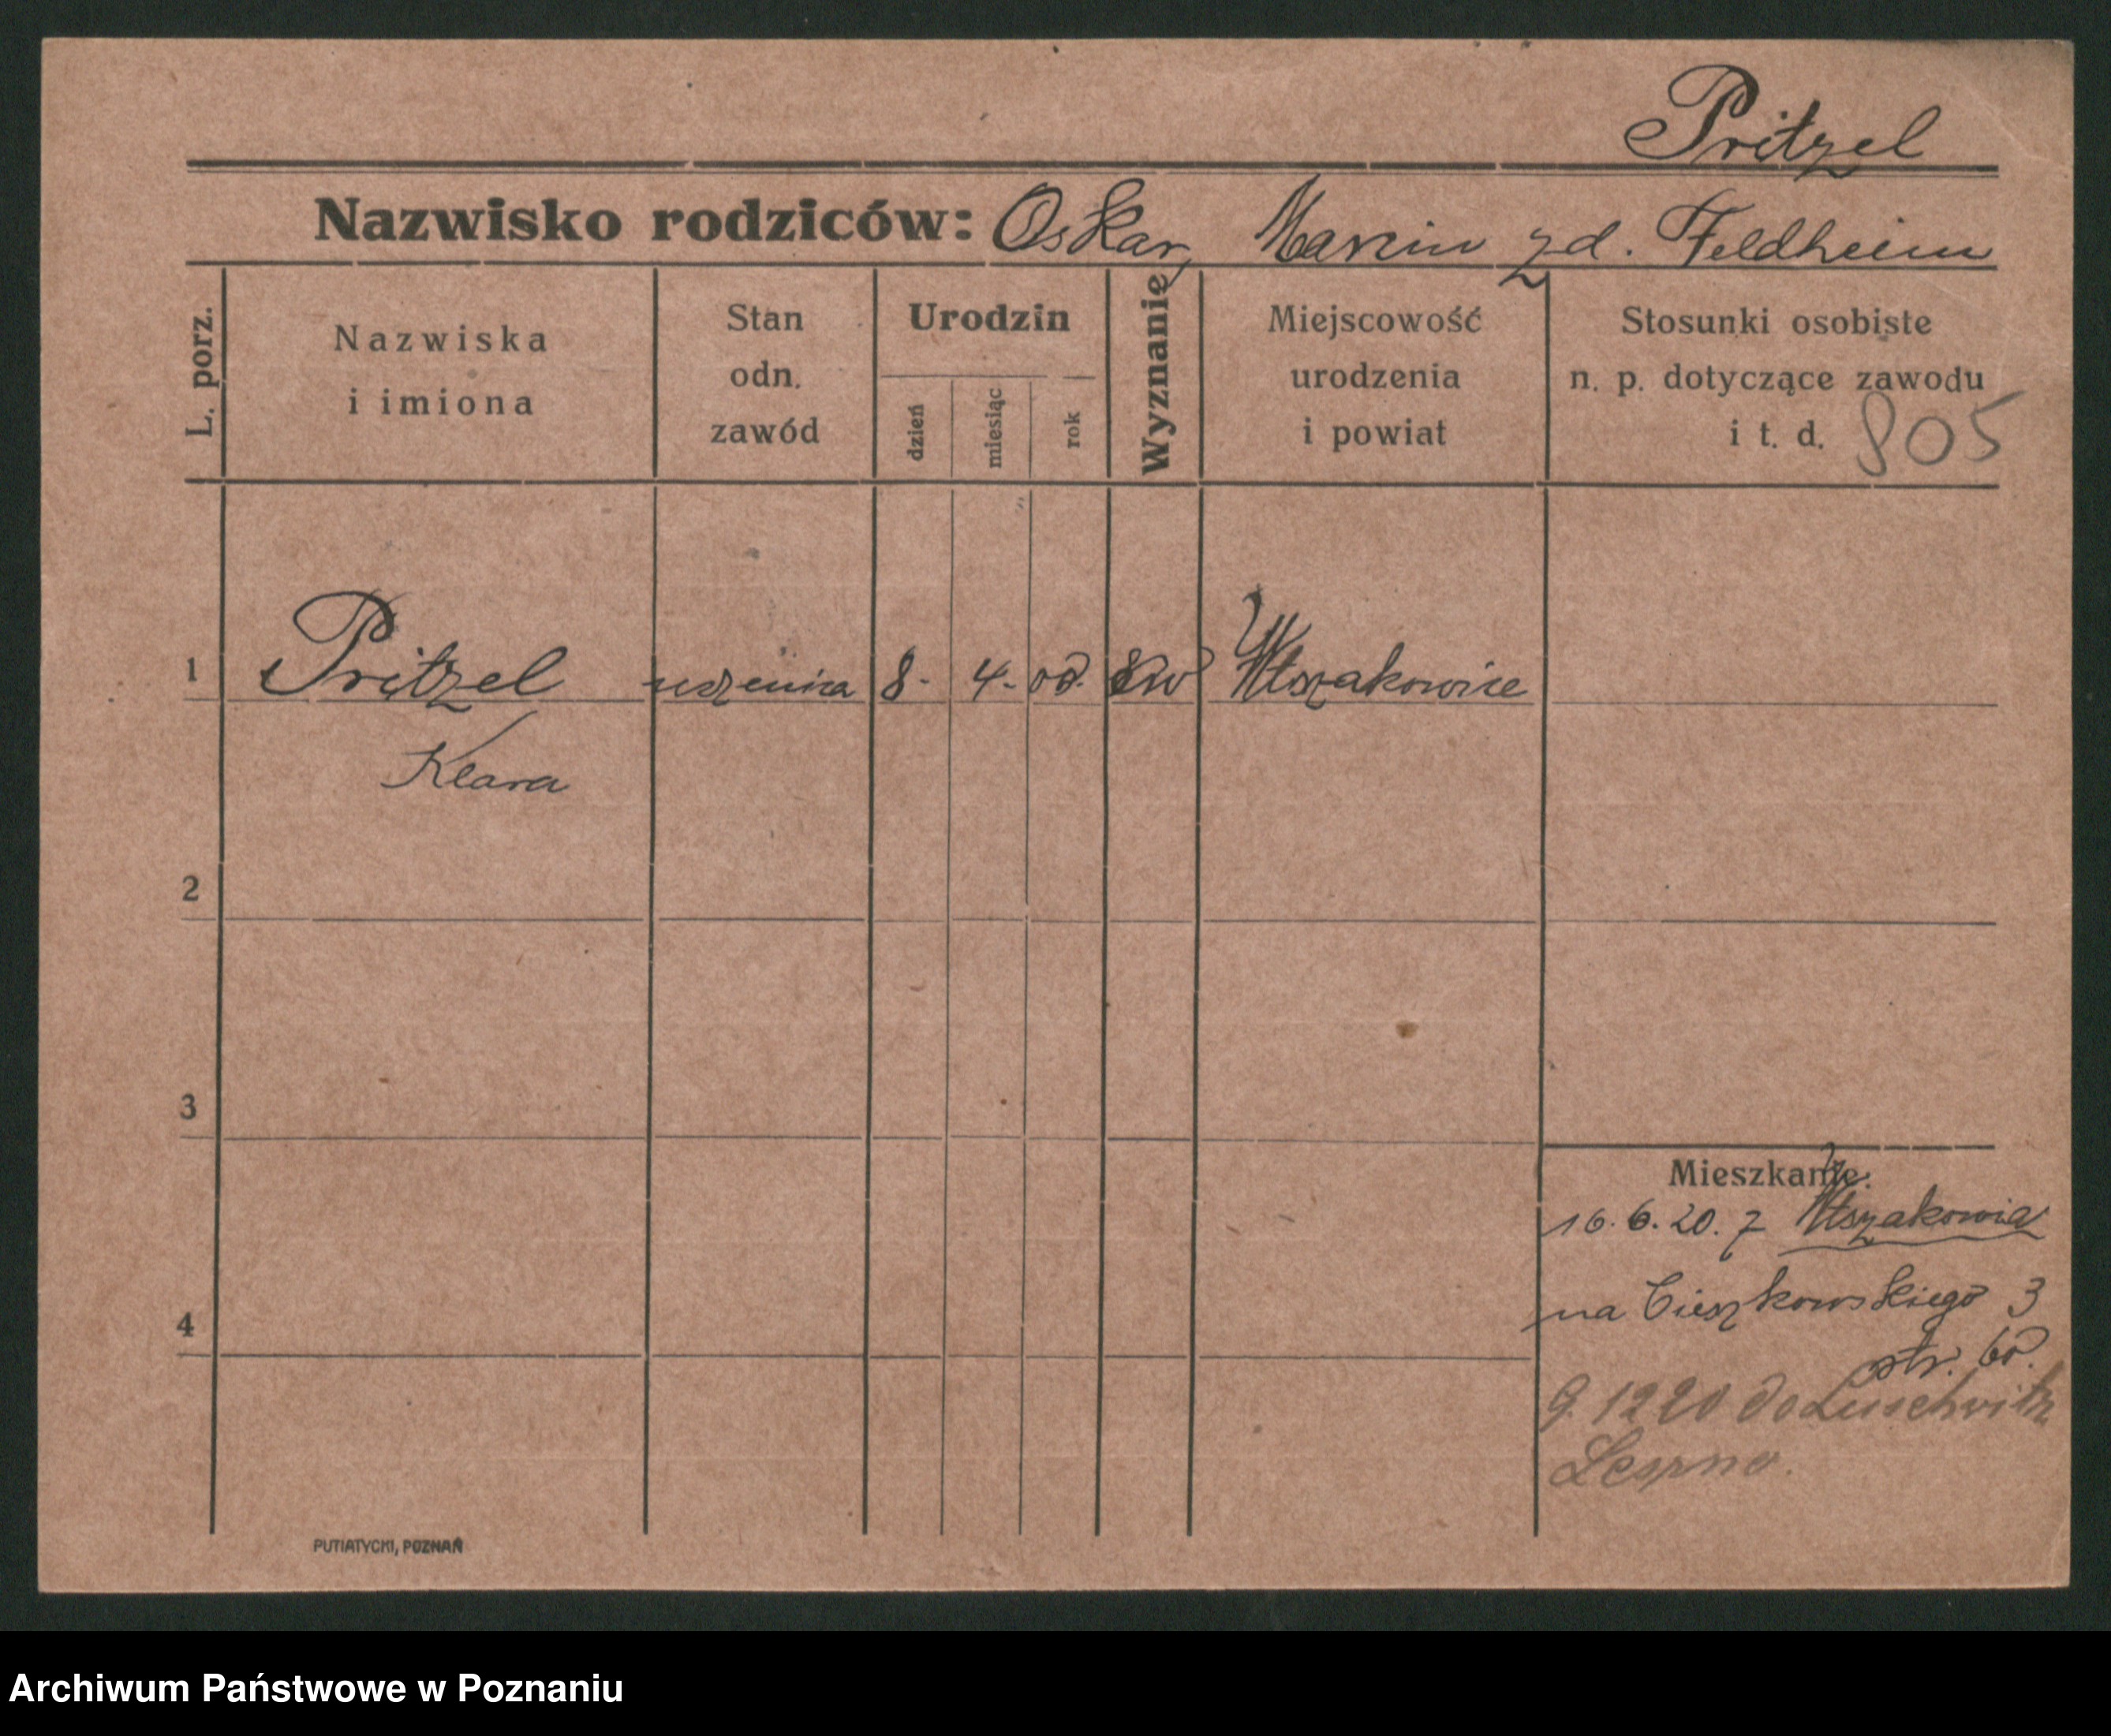 Pritzel
Nazwisko rodziców: Oskar, Marcin zd. Feldheim
L. porz.
Nazwiska
i imiona
Stan
odn.
zawód
Urodzin
dzień
miesiąc
rok
Wyznanie
Miejscowość
urodzenia
i powiat
Stosunki osobiste
n. p. dotyczące zawodu
i t. d. 805
1 Pritzel uczenica 8. 4. Włoszakowice
Klara
2
3
4
Mieszkanie:
16.6.20. z
na Cieszkowskiego 3
str.
9. 12 20 do Luschwitz
Leszno.
PUTIATYCKI, POZNAŃ
Archiwum Państwowe w Poznaniu